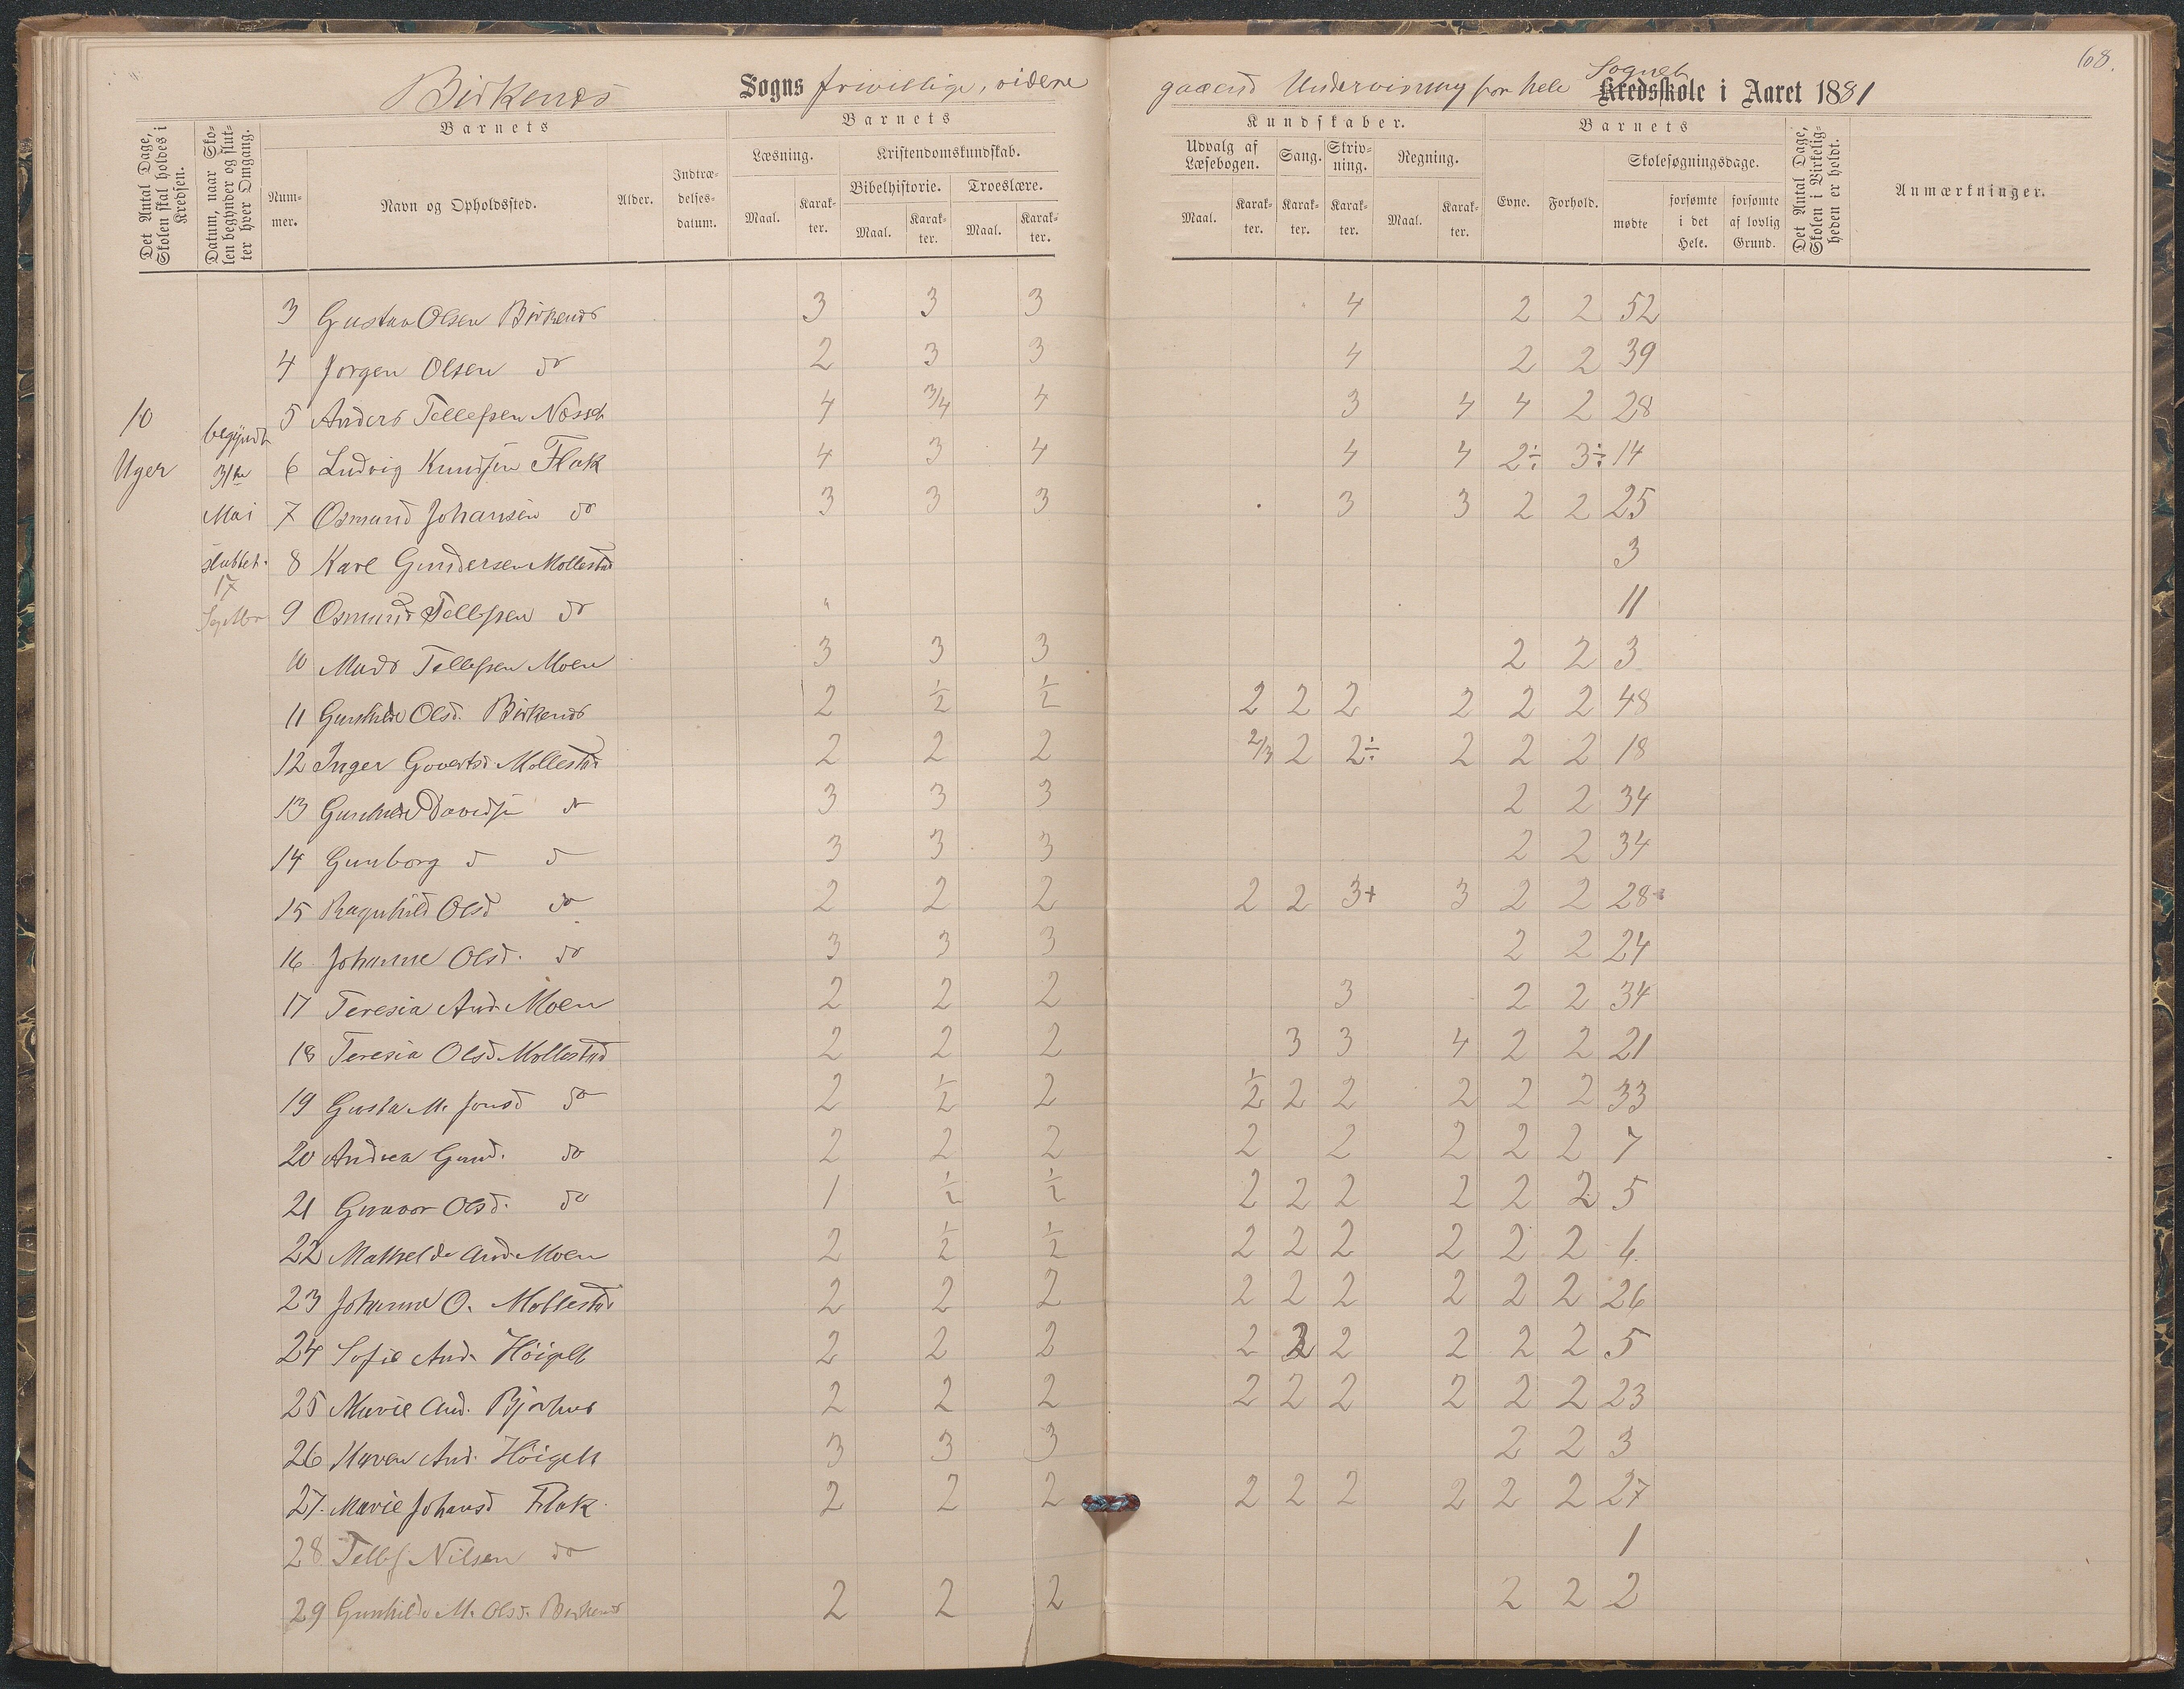 68.
Birkenes Sogns frivillige, videre gaaend Undervisning for hele Sognet Kredsskole i Aaret 1881
Det Antal Dage, Skolen skal holdes i Kredsen.
Datum, naar Skolen begynder og slutter hver Omgang.
Barnets
Nummer.
Navn og Opholdssted.
Alder.
Indtrædelsesdatum.
Barnets
Læsning.
Maal.
Karakter.
Kristendomskundskab.
Bibelhistorie.
Maal.
Karakter.
Troeslære.
Maal.
Karakter.
Kundskaber.
Udvalg af Læsebogen.
Maal.
Karakter.
Sang.
Karakter.
Skrivning.
Karakter.
Regning.
Maal.
Karakter.
Barnets
Evne.
Forhold.
Skolesøgningsdage.
mødte
forsømte i det Hele.
forsømte af lovlig Grund.
Det Antal Dage, Skolen i Virkeligheden er holdt.
Anmærkninger.
10 Uger
begyndt 31te Mai
sluttet. 17 Septbr
3 Gustav Olsen Birkenes 3 3 3 4 2 2 52
4 Jørgen Olsen do 2 3 3 4 2 2 39
5 Anders Tellefsen Næsset 4 3/4 4 3 4 4 2 28
6 Ludvig Knudsen Flak 4 3 4 4 4 2÷ 3÷ 14
7 Osmund Johansen do 3 3 3 3 3 2 2 25
8 Karl Gundersen Mollestad 3
9 Osmund Tellefsen do 11
10 Mads Tellefsen Moen 3 3 3 2 2 3
11 Gunhilde Olsd. Birkenes 2 1/2 1/2 2 2 2 2 2 2 48
12 Inger Govertsd Mollestad 2 2 2 2/3 2 2÷ 2 2 2 18
13 Gunhilde Davidsd do 3 3 3 2 2 34
14 Gunborg d d 3 3 3 2 2 34
15 Ragnhild Olsd do 2 2 2 2 2 3+ 3 2 2 28
16 Johanne Olsd. do 3 3 3 2 2 24
17 Teresia And. Moen 2 2 2 3 2 2 34
18 Teresia Olsd Mollestad 2 2 2 3 3 4 2 2 21
19 Gusta M. Jonsd do 2 1/2 2 1/2 2 2 2 2 2 33
20 Andrea Gund. do 2 2 2 2 2 2 2 2 7
21 Gunvor Olsd. do 1 1/2 1/2 2 2 2 2 2 2 5
22 Mathelde And. Moen 2 1/2 1/2 2 2 2 2 2 2 6
23 Johanne O. Mollestad 2 2 2 2 2 2 2 2 2 26
24 Sofie And. Høigilt 2 2 2 2 2 2 2 2 2 5
25 Marie And. Bjorhus 2 2 2 2 2 2 2 2 2 23
26 Maren And. Høigilt 3 3 3 2 2 3
27. Marie Johansd Flak. 2 2 2 2 2 2 2 2 2 27
28 Tellf Nilsen do 1
29 Gunhilde M. Olsd. Birkenes 2 2 2 2 2 2